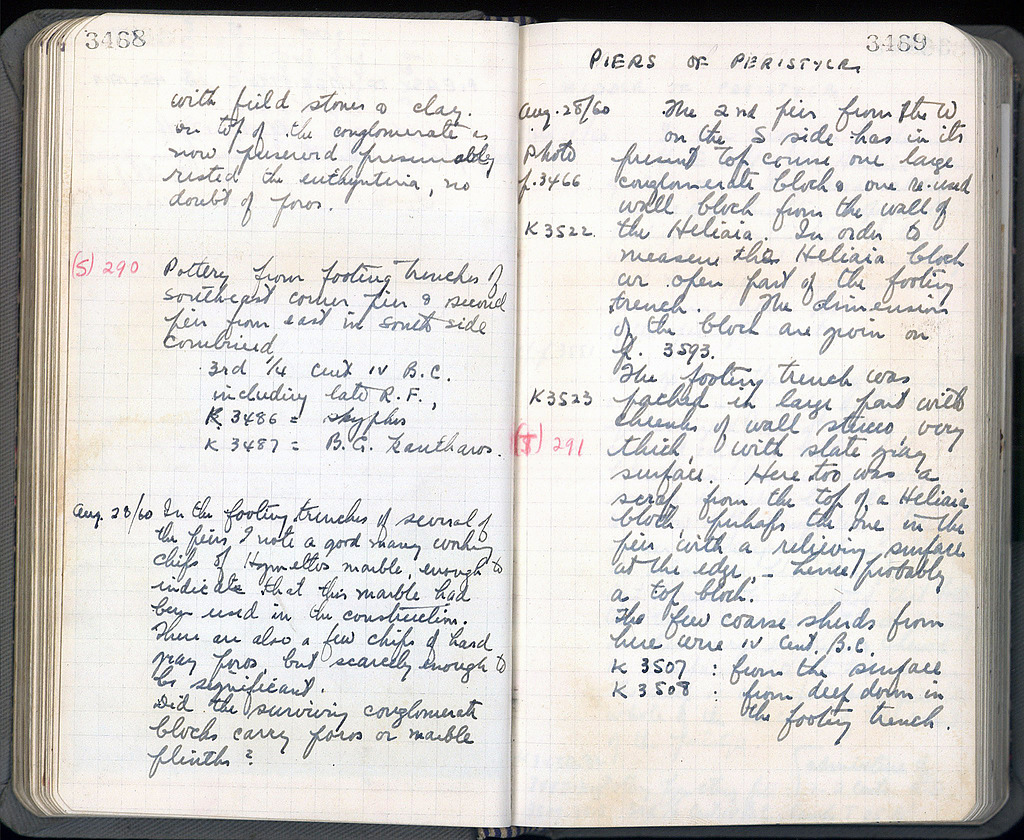 3468
with field stones & clay.
On top of the conglomerate as
now preserved presumably
rested the euthynteria, no
doubt of poros.
(S) 290
Pottery from footing trenches of
southeast corner pier & second
pier from east in south side
combined
3rd 1/4 cent IV B.C.
including late R.F.,
K 3486 = skyphos
K 3487 = B.G. kantharos.
Aug. 23/60 In the footing trenches of several of
the piers I note a good many working
chips of Hymettos marble, enough to
indicate that this marble had
been used in the construction.
There are also a few chips of hard
gray poros, but scarcely enough to
be significant.
Did the surviving conglomerate
blocks carry poros or marble
plinths?
3469
PIERS OF PERISTYLE
Aug. 28/60 The 2nd pier from the W
on the S side has in its
Photo present top course one large
p. 3466 conglomerate block & one re-used
wall block from the wall of
K 3522 the Heliaia. In order to
measure this Heliaia block
we open part of the footing
trench. The dimensions
of the block are given on
p. 3593.
The footing trench was
K 3523 packed in large part with
chunks of wall stucco, very
(S) 291 thick, with slate gray
surface. Here too was a
scrap from the top of a Heliaia
block, perhaps the one in the
pier, with a relieving surface
at the edge, – hence probably
a top block.
The few coarse sherds from
here were IV cent. B.C.
K 3507 : from the surface
K 3508 : from deep down in
the footing trench.